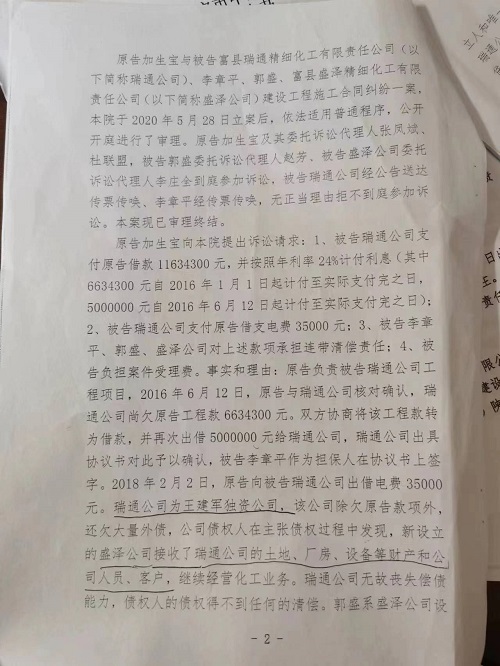 原告加生宝与被告富县瑞通精细化工有限责任公司（以
下简称瑞通公司）、李章平、郭盛、富县盛泽精细化工有限
责任公司（以下简称盛泽公司）建设工程施工合同纠纷一案，
本院于 2020 年 5 月 28 日立案后，依法适用普通程序，公开
开庭进行了审理。原告加生宝及其委托诉讼代理人张凤斌、
杜联盟，被告郭盛委托诉讼代理人赵芳、被告盛泽公司委托
诉讼代理人李庄全到庭参加诉讼，被告瑞通公司经公告送达
传票传唤、李章平经传票传唤，无正当理由拒不到庭参加诉
讼。本案现已审理终结。
原告加生宝向本院提出诉讼请求：1、被告瑞通公司支
付原告借款 11634300 元，并按照年利率 24%计付利息（其中
6634300 元自 2016 年 1 月 1 日起计付至实际支付完之日，
5000000 元自 2016 年 6 月 12 日起计付至实际支付完之日）；
2、被告瑞通公司支付原告借支电费 35000 元；3、被告李章
平、郭盛、盛泽公司对上述款项承担连带清偿责任；4、被
告负担案件受理费。事实和理由：原告负责被告瑞通公司工
程项目，2016 年 6 月 12 日，原告与瑞通公司核对确认，瑞
通公司尚欠原告工程款 6634300 元。双方协商将该工程款转
为借款，并再次出借 5000000 元给瑞通公司，瑞通公司出具
协议书对此予以确认，被告李章平作为担保人在协议书上签
字。2018 年 2 月 2 日，原告向被告瑞通公司出借电费 35000
元。瑞通公司为王建军独资公司，该公司除欠原告款项外，
还欠大量外债，公司债权人在主张债权过程中发现，新设立
的盛泽公司接收了瑞通公司的土地、厂房、设备等财产和公
司人员、客户，继续经营化工业务。瑞通公司无故丧失偿债
能力，债权人的债权得不到任何的清偿。郭盛系盛泽公司设
- 2 -
立人和唯一
瑞通公司